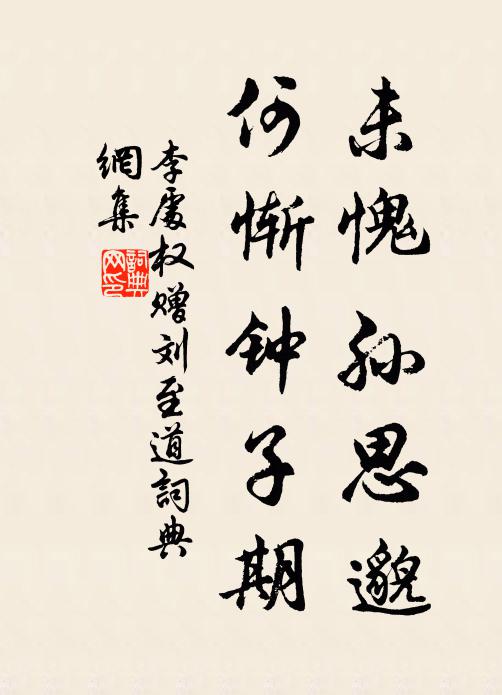 未愧孙思邈
何惭钟子期
李處权赠刘至道詞典
網集
詞典
网印